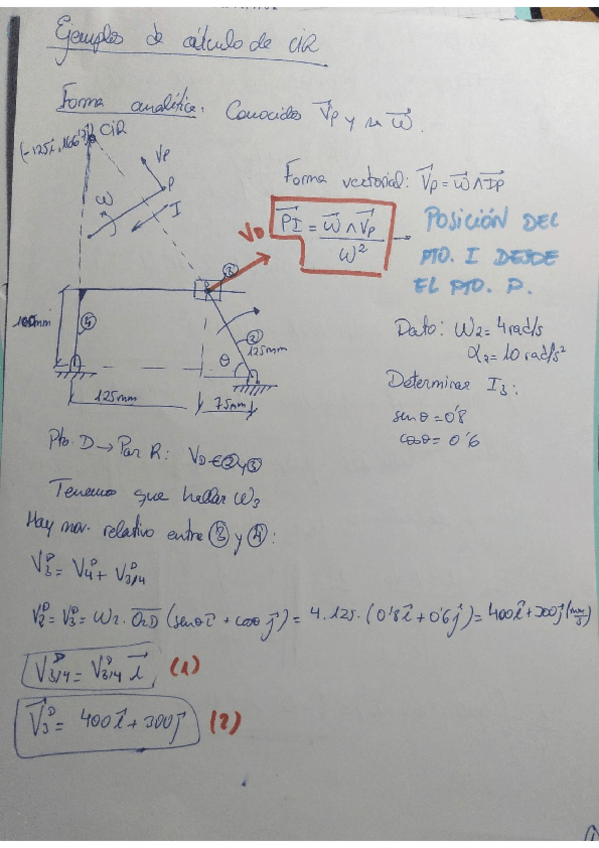 Ejemplos de cálculo de CIR
Forma analítica: Conocidos V⃗p y su ω⃗.
CIR
(-125i, 166'
Vp
P
ω
I
Forma vectorial: V⃗p = ω⃗ ∧ I⃗P
P⃗I = ω⃗ ∧ V⃗p / ω² →
POSICIÓN DEL
PTO. I DESDE
EL PTO. P.
VD
③
100mm
④
②
125mm
θ
125mm
75mm
Dato: ω₂ = 4 rad/s
α₂ = 10 rad/s²
Determinar I₃:
senθ = 0'8
cosθ = 0'6
Pto. D → Par R: VD ∈ ② y ③
Tenemos que hallar ω₃
Hay mov. relativo entre ③ y ④:
V₃ᴰ = V₄ᴰ + V₃/₄ᴰ
V₂ᴰ = V₃ᴰ = ω₂ · O₂D (senθ i⃗ + cosθ j⃗) = 4 · 125 · (0'8 i⃗ + 0'6 j⃗) = 400 i⃗ + 300 j⃗ (mm/s)
V₃/₄ᴰ = V₃/₄ᴰ i⃗ (1)
V⃗₃ᴰ = 400 i⃗ + 300 j⃗ (2)